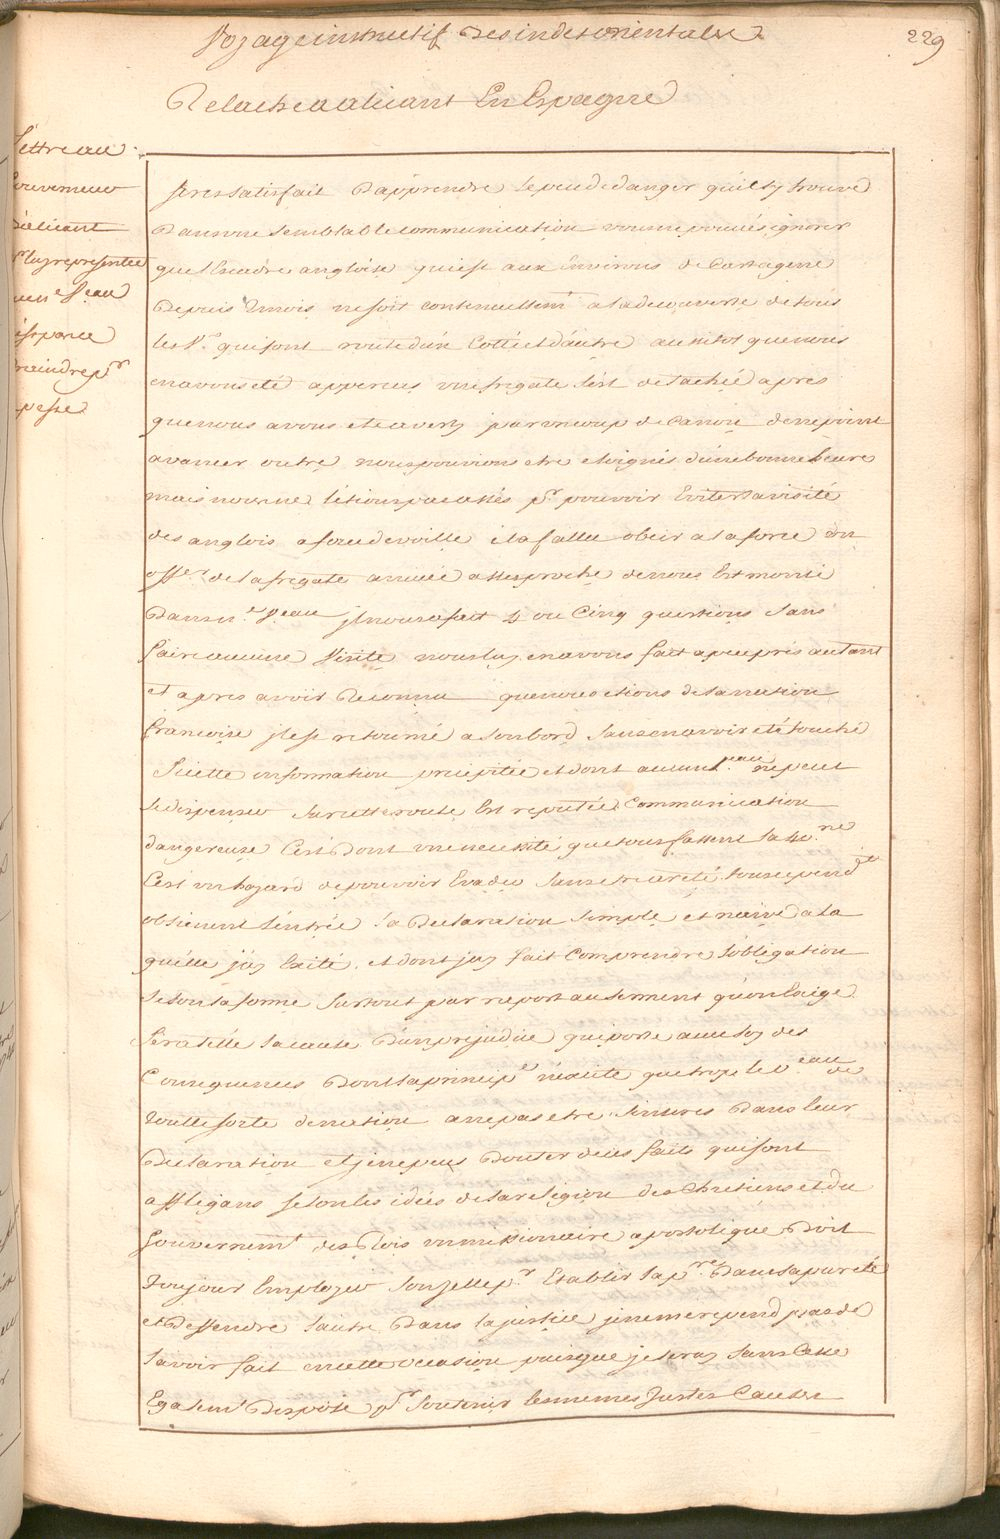 Voyage instructif Des indes orientales
229
Relache a alicant En Espagne
Lettre au
Gouverneur
D'alicant
luy representer
n.e V.eau
p.r
peste
Tres satisfait D'apprendre le peu de danger qu'il s'y trouve
Dans une semblable communication vous ne pouvés ignorer
que l'Escadre angloise qui est aux Environs de Cartagene
Depuis 2 mois ne soit continuellem.t a la decouverte de tous
les V.x qui font route d'un Cotté et d'autre aussitot que nous
en avons eté apperçus une fregate s'est detachée apres
que nous avons eté averty par un coup de Canon de ne point
avancer outre nous pouvions etre eloignés d'une bonne heure
mais nous ne l'etions pas assés p.r pouvoir Eviter la visite
des anglois a force de voille il a fallu obeir a la force un
off.er de la fregate arrivée asses proche de nous Est monté
Dans n.e V.eau il nous a fait 4 ou Cinq questions sans
faire aucune Visite nous luy en avons fait a peu prés autant
et apres avoir Reconnu que nous etions de la nation
françoise il est retourné a son bord sans en avoir eté touché
Si cette information precipitée et dont aucun V.eau ne peut
se dispenser sur cette route Est reputée Communication
dangereuse C'est Dont une necessité que tous fassent la 40.ne
C'est un hazard de pouvoir Evader sans etre areté tous cepend.t
obtienent l'entrée la Declaration simple et naive a la
quelle j'ay Exité et dont j'ay fait Comprendre l'obligation
selon la forme surtout par raport au serment qu'on Exige
sera t'elle la cause D'un prejudice qui porte avec soy des
Consequences Dont la princip.le n'eclate que trop les V.eau de
toutte sorte de nation a ne pas etre sinceres Dans leur
Declaration et je ne peus Douter de ces faits qui sont
affligans selon les idées de la religion des Chretiens et du
Gouvernem.t des Rois un missionaire apostolique Doit
toujour Employer son zelle p.r Etablir la p.re Dans sa pureté
et Deffendre l'autre Dans la justice je ne me repend pas de
l'avoir fait en cette occasion puisque je seray sans Cesse
Egalem.t Disposé p.r Soutenir les memes Justes Causes